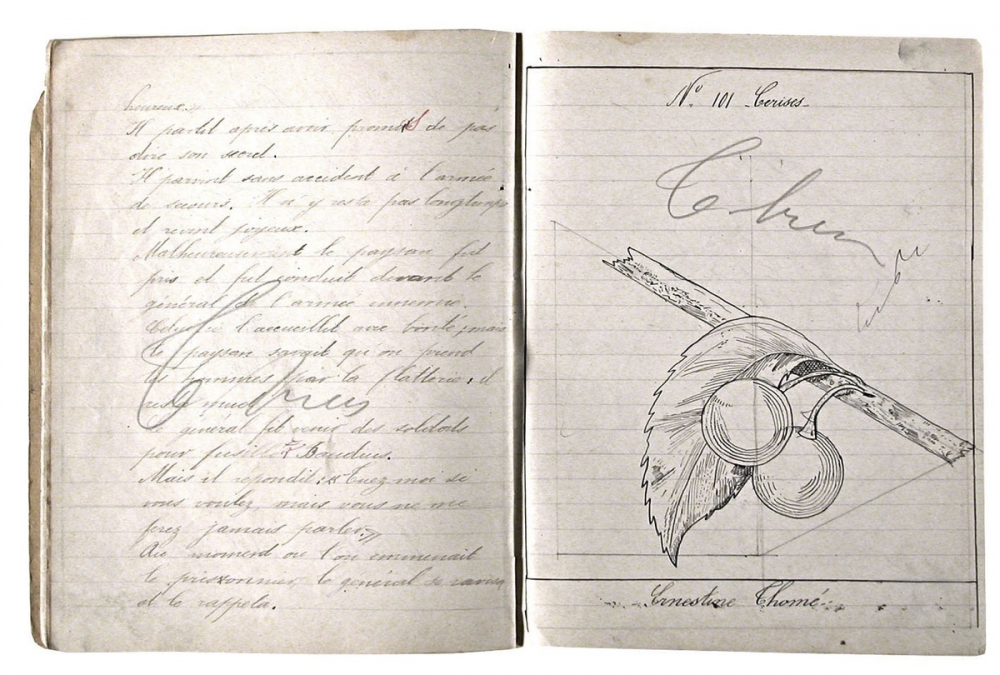 heureux. »
Il partit après avoir promis de pas
dire son secret.
Il parvint sans accident à l'armée
de secours. Il n'y resta pas longtemps
et revint joyeux.
Malheureusement le paysan fut
pris et fut conduit devant le
général de l'armée ennemie.
l'accueillit avec bonté; mais
le paysan savait qu'on prend
les hommes par la flatterie; il
resta muet
général fit venir des soldats
pour fusiller Baudius.
Mais il répondit: « Tuez moi si
vous voulez, mais vous ne me
ferez jamais parler. »
Au moment ou l'on emmenait
le prisonnier, le général se ravisa
et le rappela.
T. bien
No 101 Cerises
T. bien
Ernestine Thomé